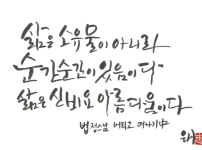 삶은 소유물이 아니라
순간순간이 있음이다
삶은 신비요 아름다움이다
법정스님 버리고 떠나기中